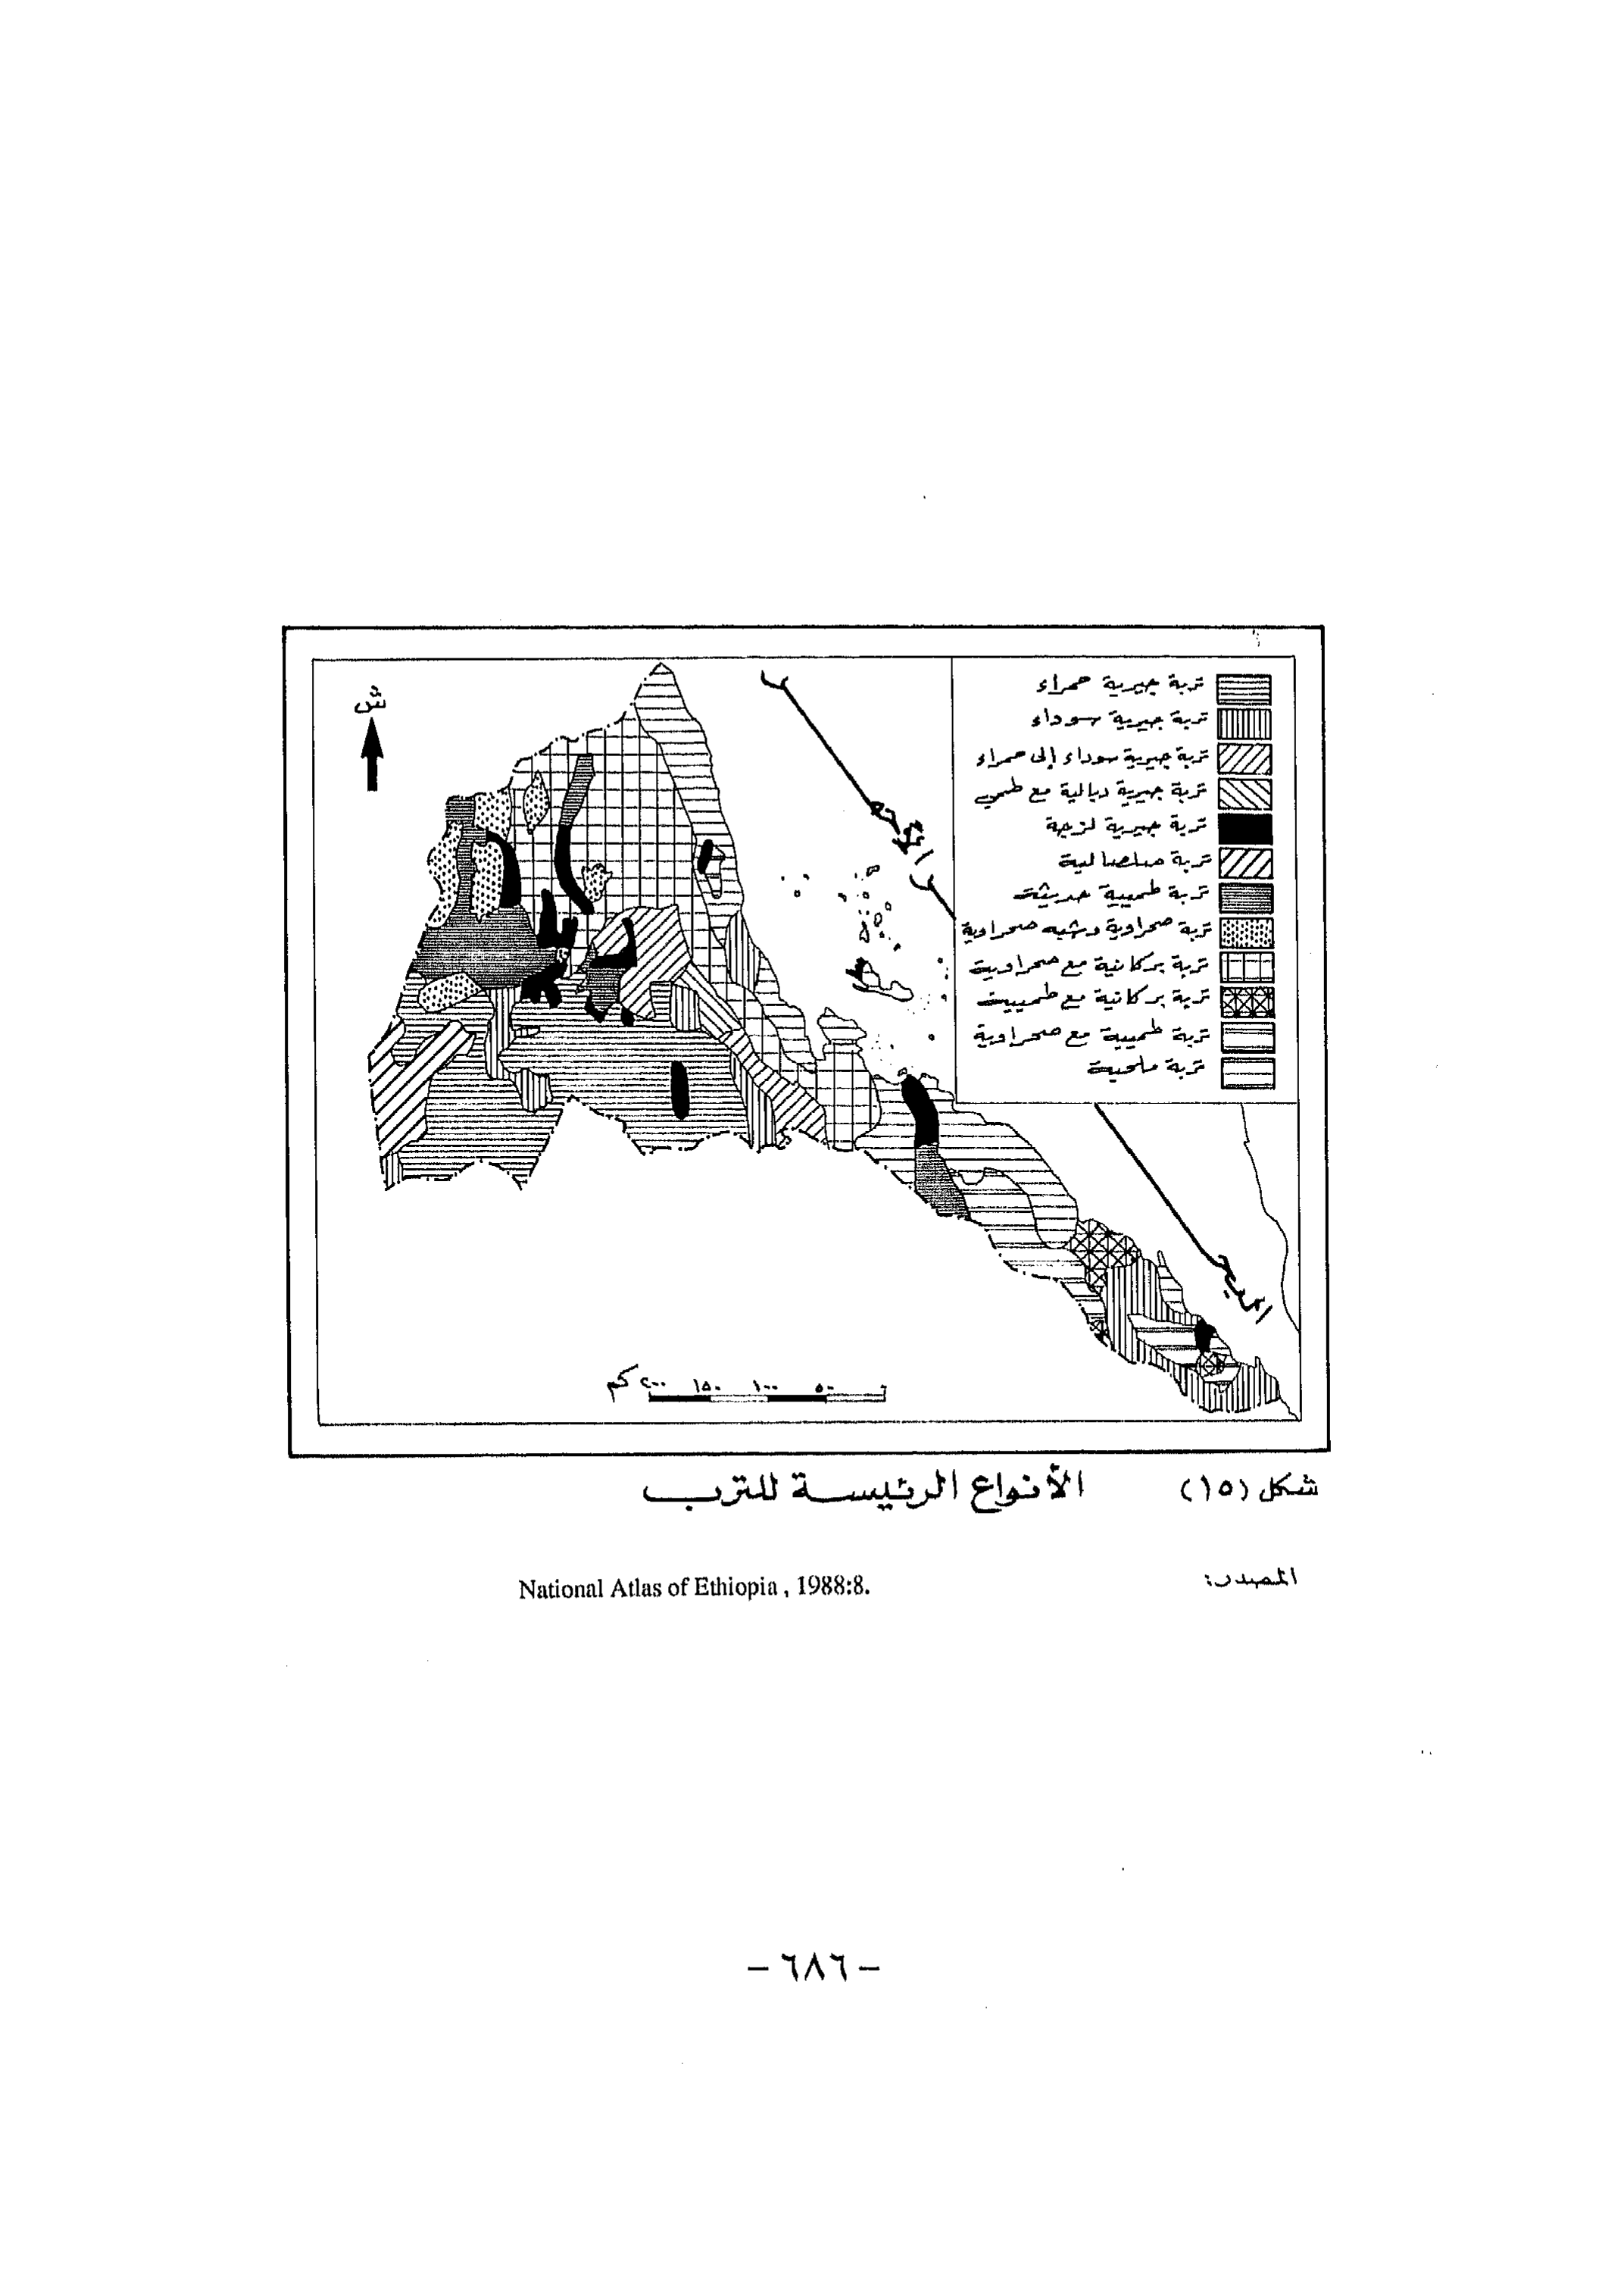 ش
تربة جيرية حمراء
تربة جيرية سوداء
تربة جيرية سوداء إلى حمراء
تربة جيرية ديالية مع طمي
تربة جيرية لزجة
تربة صلصالية
تربة طميية حديثة
تربة صحراوية وشبه صحراوية
تربة بركانية مع صحراوية
تربة بركانية مع طميية
تربة طميية مع صحراوية
تربة ملحية
البحر
الأحمر
٢٠٠ ١٥٠ ١٠٠ ٥٠ ٠ كم
شكل (١٥) الأنواع الرئيسة للترب
المصدر: National Atlas of Ethiopia, 1988:8.
- ٦٨٦ -